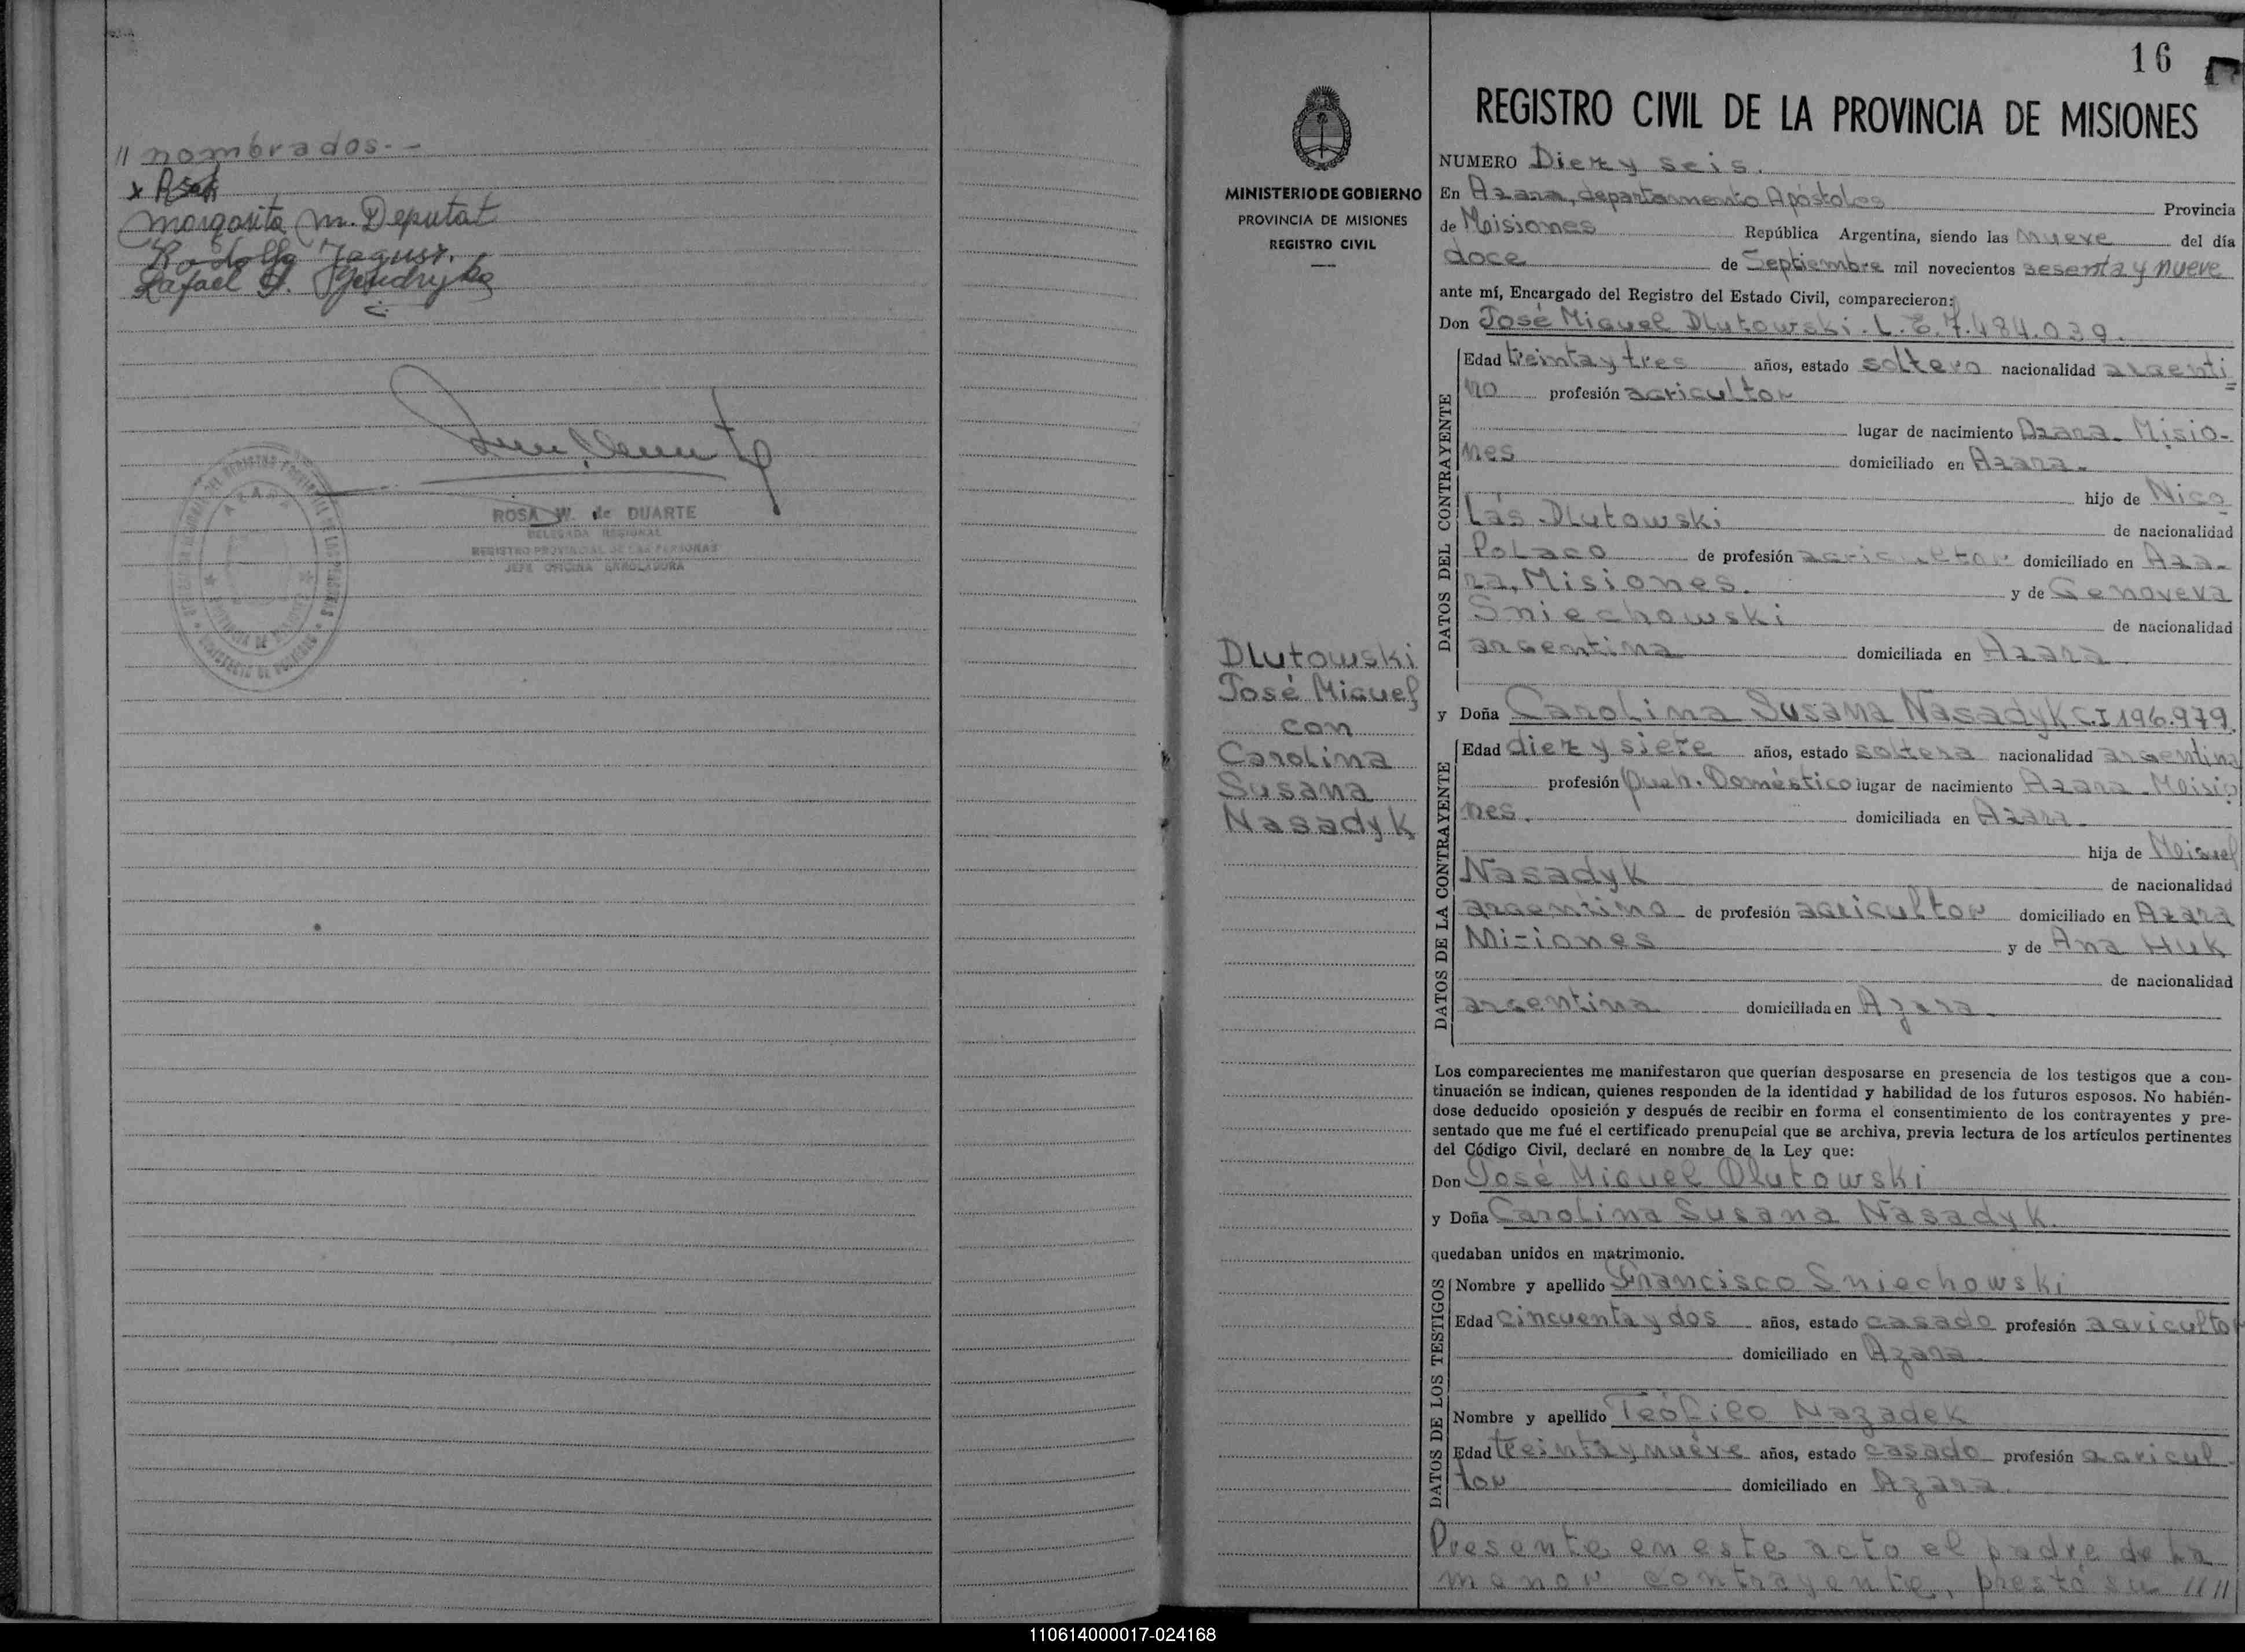 // nombrados.--
Margarita M. Deputat
Rodolfo Jagusz.
Rafael
ROSA W. de DUARTE
DELEGADA REGIONAL
REGISTRO PROVINCIAL DE LAS PERSONAS
JEFE OFICINA ENROLADORA
16
REGISTRO CIVIL DE LA PROVINCIA DE MISIONES
MINISTERIO DE GOBIERNO
PROVINCIA DE MISIONES
REGISTRO CIVIL
Dlutowski
José Miguel
con
Carolina
Susana
Nasadyk
NUMERO Diez y seis.
En Azara, departamento Apóstoles Provincia
de Misiones República Argentina, siendo las nueve del día
doce de Septiembre mil novecientos sesenta y nueve
ante mí, Encargado del Registro del Estado Civil, comparecieron:
Don José Miguel Dlutowski. L.E. 7.484.039.
DATOS DEL CONTRAYENTE
Edad treinta y tres años, estado soltero nacionalidad argenti=
no profesión agricultor
lugar de nacimiento Azara. Misio-
nes domiciliado en Azara.
hijo de Nico
lás Dlutowski de nacionalidad
Polaco de profesión agricultor domiciliado en Aza-
ra, Misiones. y de Genoveva
Sniechowski de nacionalidad
argentina domiciliada en Azara
y Doña Carolina Susana Nasadyk C.I 196.979.
DATOS DE LA CONTRAYENTE
Edad diez y siete años, estado soltera nacionalidad argentina
profesión Queh. Doméstico lugar de nacimiento Azara. Misio
nes. domiciliada en Azara.
hija de Miguel
Nasadyk de nacionalidad
argentino de profesión agricultor domiciliado en Azara
Misiones y de Ana Huk
de nacionalidad
argentina domiciliada en Azara.
Los comparecientes me manifestaron que querían desposarse en presencia de los testigos que a con-
tinuación se indican, quienes responden de la identidad y habilidad de los futuros esposos. No habién-
dose deducido oposición y después de recibir en forma el consentimiento de los contrayentes y pre-
sentado que me fué el certificado prenupcial que se archiva, previa lectura de los artículos pertinentes
del Código Civil, declaré en nombre de la Ley que:
Don José Miguel Dlutowski
y Doña Carolina Susana Nasadyk.
quedaban unidos en matrimonio.
DATOS DE LOS TESTIGOS
Nombre y apellido Francisco Sniechowski
Edad cincuenta y dos años, estado casado profesión agricultor
domiciliado en Azara
Nombre y apellido Teófilo Nazadek
Edad treinta y nueve años, estado casado profesión agricul-
tor domiciliado en Azara.
Presente en este acto el padre de la
menor contrayente, prestó su ////
110614000017-024168